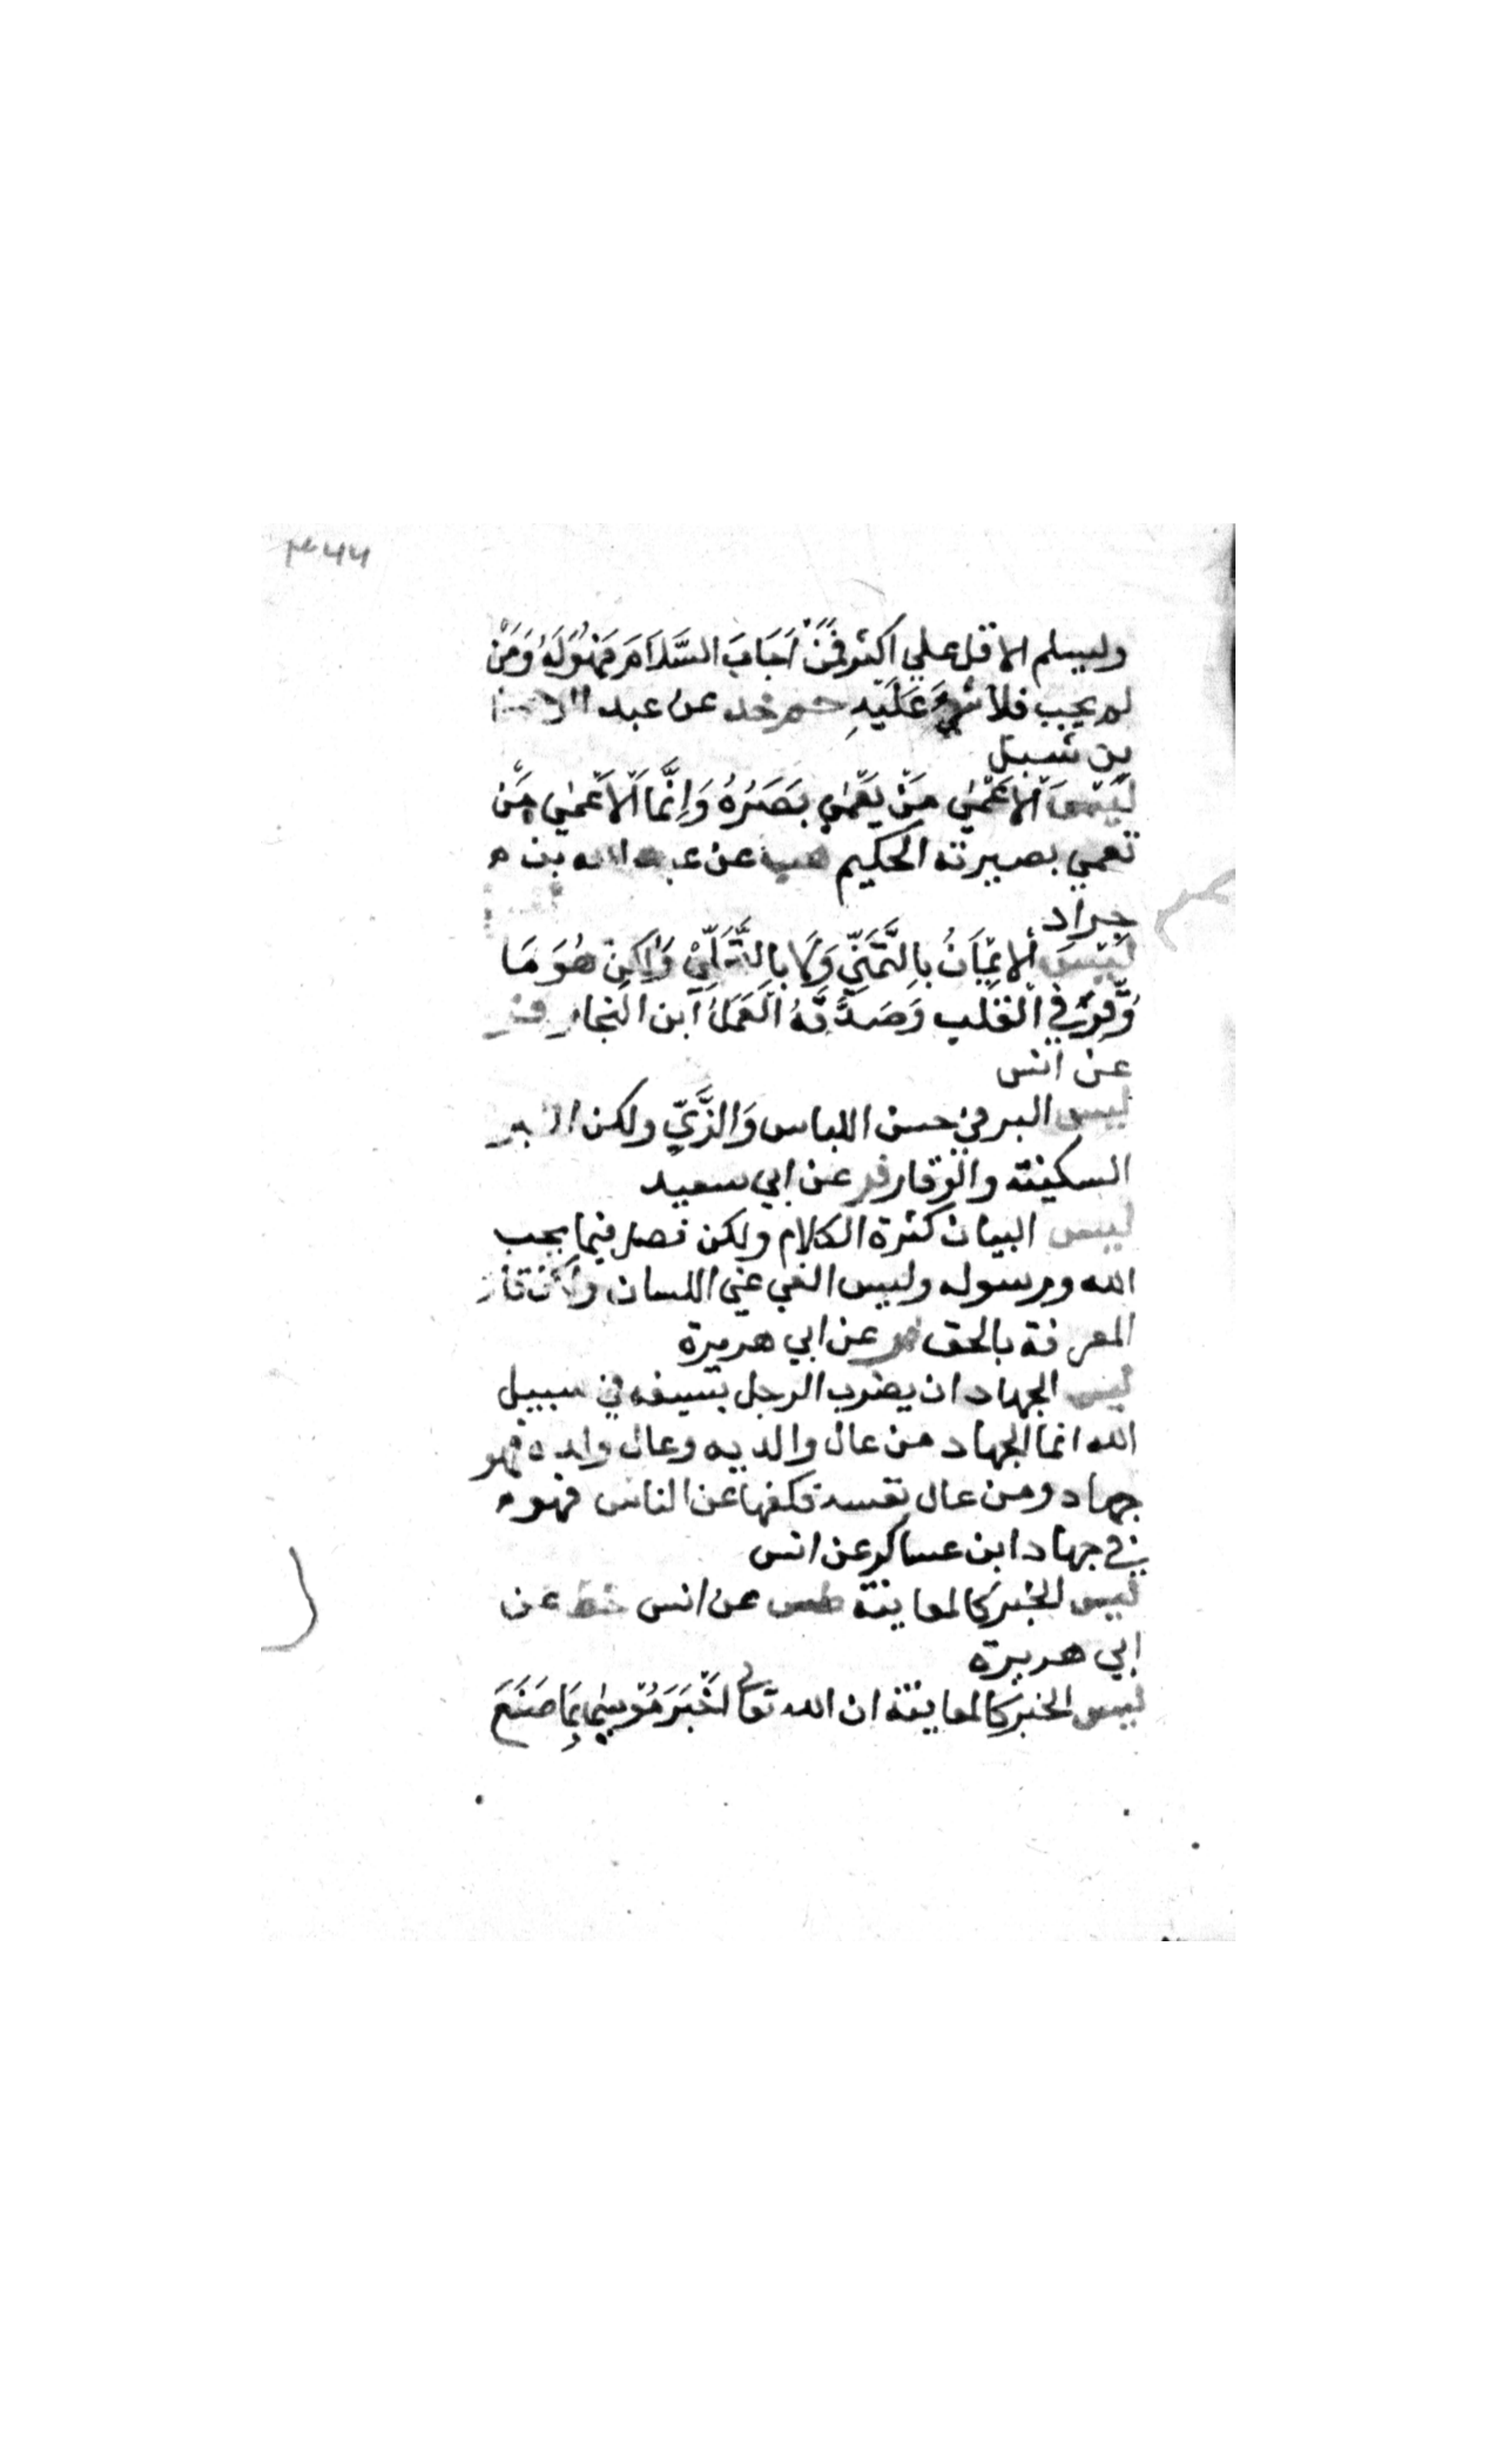 ٣٦٦
وليسلم الاقل علي اكثر فَمَنْ اَجَابَ السَّلَامَ فَهُوَ لَهُ وَمَنْ
لم يجب فلا شيءَ عَلَيهِ حم خد عن عبد
بن شبل
لَيْسَ اْلاَعْمٰي مَنْ يَعْمٰي بَصَرُهُ وَاِنَّمَا اْلاَعْمٰي مَنْ
تعمي بصيرته الحكيم هب عن عبد الله بن
جراد
لَيْسَ اْلاِيْمَانُ بِالتَّمَنِّي وَلَا بِالتَّحَلِّيْ وَلٰكِنْ هُوَ مَا
وُقِّرَ فِي اْلقَلْبِ وَصَدَّقَهُ الْعَمَلُ ابن النجار فر
عن انس
ليس البر في حسن اللباس وَالزَّيِّ ولكن البر
السكينته والوقار فر عن ابي سعيد
ليس البيان كثرة الكلام ولكن فصل فيما يحب
الله ورسوله وليس العي عي اللسان ولكن قلة
المعرفة بالحق فر عن ابي هريرة
ليس الجهاد ان يضرب الرجل بسيفه في سبيل
الله انما الجهاد من عال والديه وعال ولده فهو
جهاد ومن عال نفسه فكفها عن الناس فهو
في جهاد ابن عساكر عن انس
ليس الخبر كالمعاينة طس عن انس خط عن
ابي هريرة
ليس الخبر كالمعاينة ان الله تعالي اَخْبَرَ مُوْسٰي بِمَا صَنَعَ